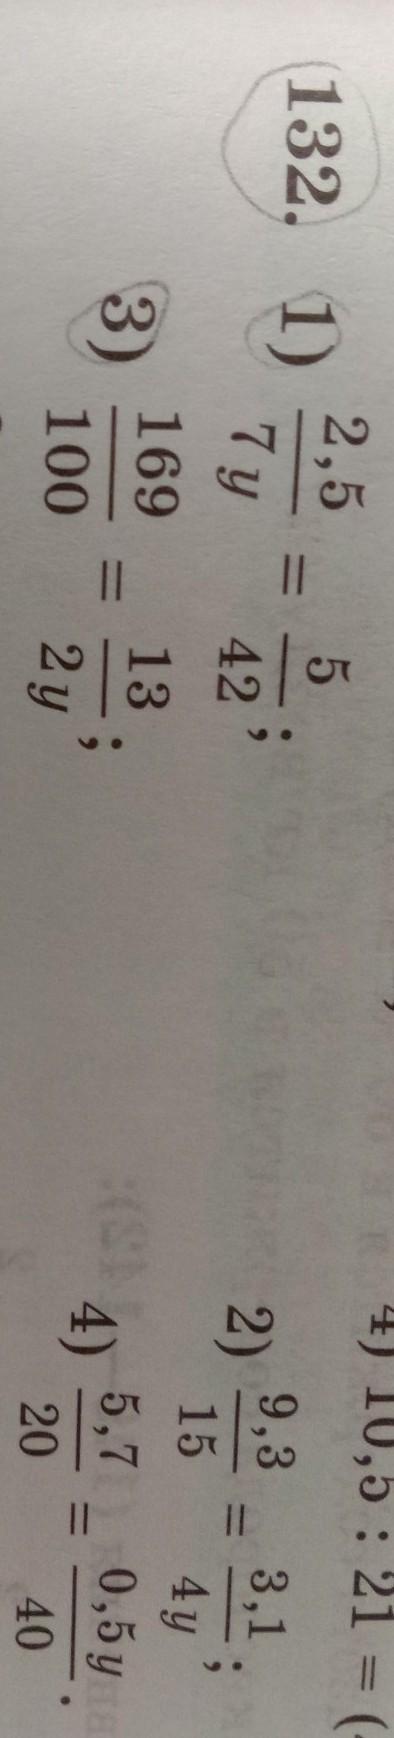 4) 10,5 : 21 = (
132. 1) 2,5/7y = 5/42; 2) 9,3/15 = 3,1/4y;
3) 169/100 = 13/2y; 4) 5,7/20 = 0,5y/40.